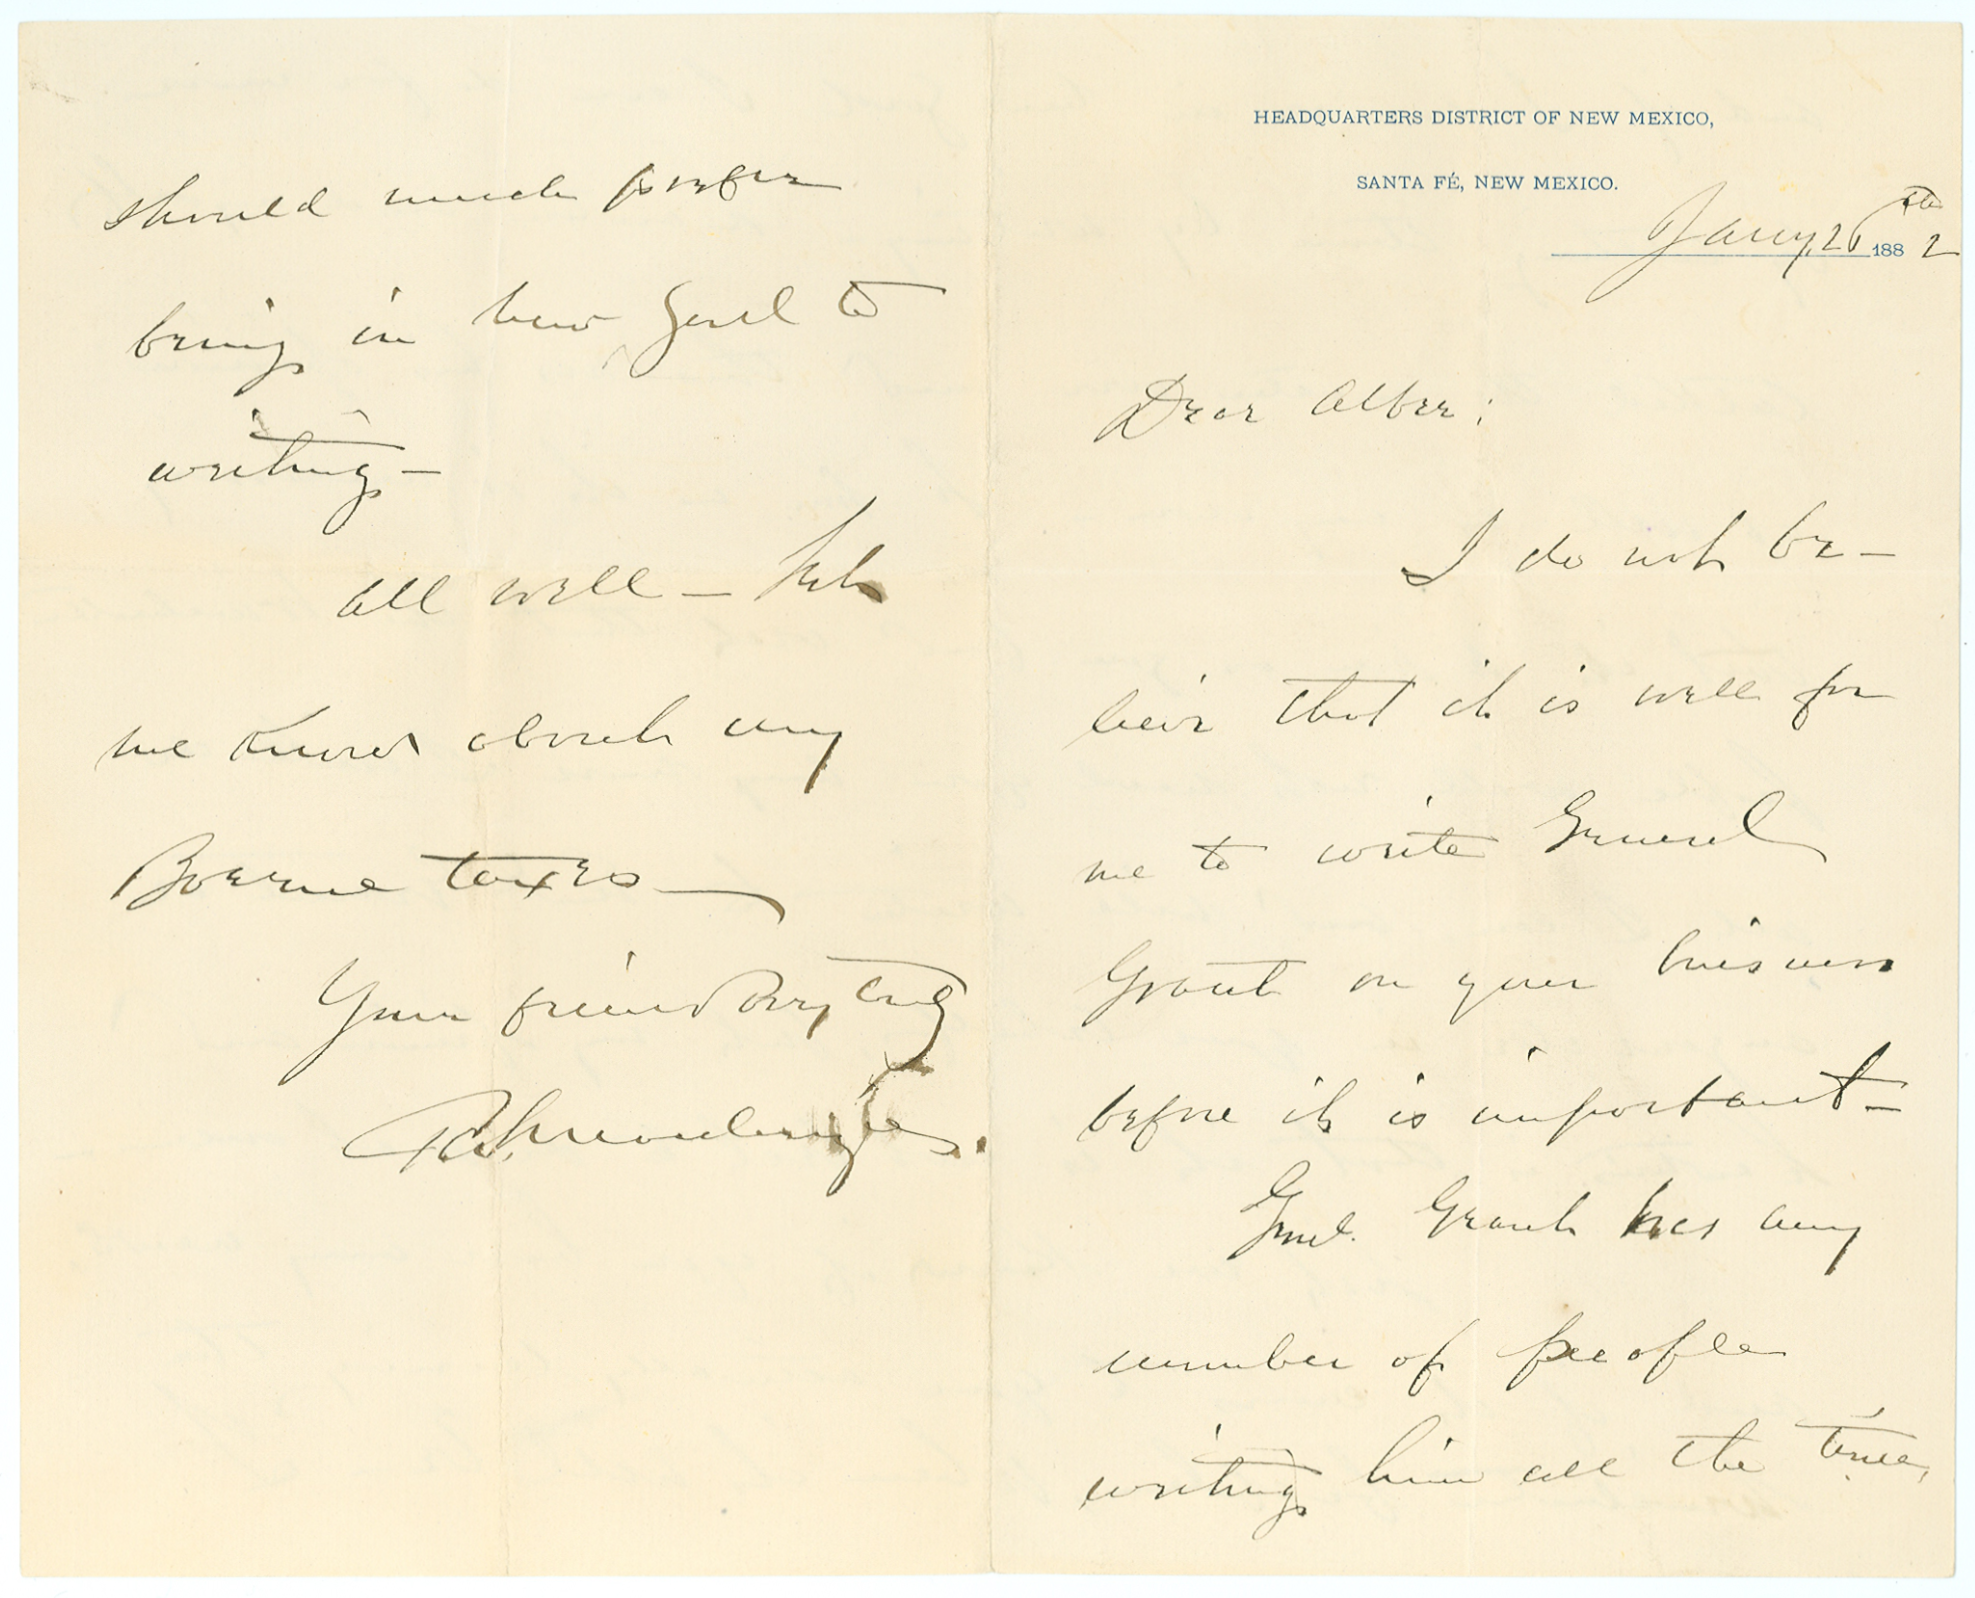 HEADQUARTERS DISTRICT OF NEW MEXICO,
SANTA FÉ, NEW MEXICO.
Jany. 26th 1882
Dear Alber:
I do not be-
lieve that it is well for
me to write General
Grant on your business
before it is important—
Genl. Grant has any
number of people
writing him all the time,
should much prefer
being in Genl to
writing—
All well — Let
me know about my
Boerne taxes—
Your friend Very truly
R.S. Mackenzie.